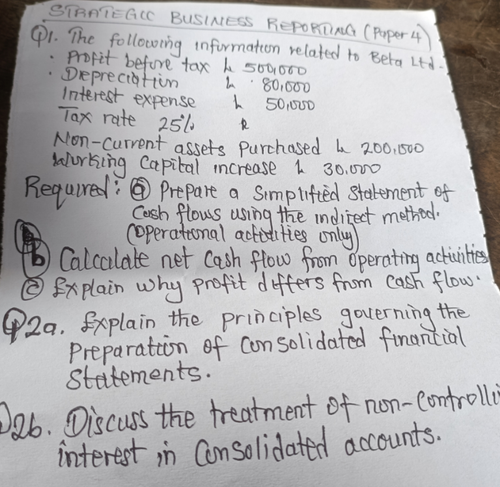 STRATEGIC BUSINESS REPORTING (Paper 4)
Q1. The following information related to Beta Ltd.
• Profit before tax N 500,000
• Depreciation N 80,000
Interest expense N 50,000
Tax rate 25%
Non-current assets purchased N 200,000
Working capital increase N 30,000
Required: (a) Prepare a simplified statement of
Cash flows using the indirect method.
(operational activities only)
(b) Calculate net cash flow from operating activities
(c) Explain why profit differs from cash flow.
Q2a. Explain the principles governing the
Preparation of consolidated financial
statements.
Q2b. Discuss the treatment of non-controlli
interest in consolidated accounts.